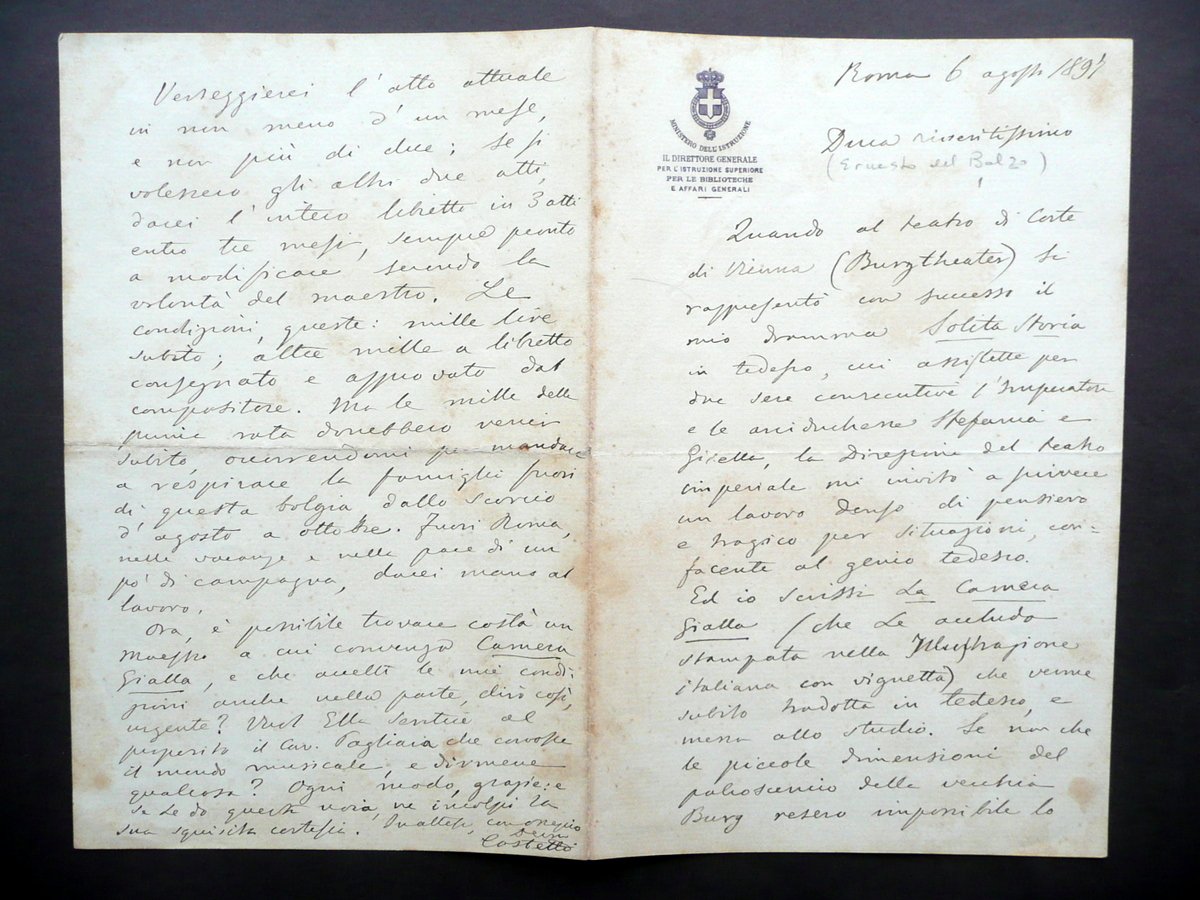 MINISTERO DELL'ISTRUZIONE
IL DIRETTORE GENERALE
PER L'ISTRUZIONE SUPERIORE
PER LE BIBLIOTECHE
E AFFARI GENERALI
Roma 6 agosto 1891
Duca riveritissimo
(Ernesto del Balzo)
Quando al teatro di Corte
di Vienna (Burgtheater) si
rappresentò con successo il
mio dramma Solita Storia
in tedesco, cui assistette per
due sere consecutive l'Imperatore
e le arciduchesse Stefania e
Gisella, la Direzione del teatro
imperiale mi invitò a scrivere
un lavoro denso di pensiero
e tragico per situazioni, con-
facente al genio tedesco.
Ed io scrissi La Camera
Gialla (che Le accludo
stampata nella Illustrazione
italiana con vignetta) che venne
subito tradotta in tedesco, e
messa allo studio. Se non che
le piccole dimensioni del
palcoscenico della vecchia
Burg resero impossibile lo
Verseggierei l'atto attuale
in non meno d'un mese,
e non più di due; se si
volessero gli altri due atti,
darei l'intero libretto in 3 atti
entro tre mesi, sempre pronto
a modificare secondo la
volontà del maestro. Le
condizioni, queste: mille lire
subito; altre mille a libretto
consegnato e approvato dal
compositore. Ma le mille della
prima rata dovrebbero venir
subito, occorrendomi per mandare
a respirare la famiglia fuori
di questa bolgia dallo scorcio
d'agosto a ottobre. Fuori Roma,
nelle vacanze e nella pace di un
po' di campagna, darei mano al
lavoro.
Ora, è possibile trovare costà un
maestro a cui convenga Camera
Gialla, e che accetti le mie condi-
zioni anche nella parte, dirò così,
urgente? Vuol Ella sentire al
proposito il Cav. Pagliara che conosce
il mondo musicale, e dirmene
qualcosa? Ogni modo, grazie: e
se Le do questa noia, ne incolpi la
sua squisita cortesia. In attesa, con ossequio
Costetti